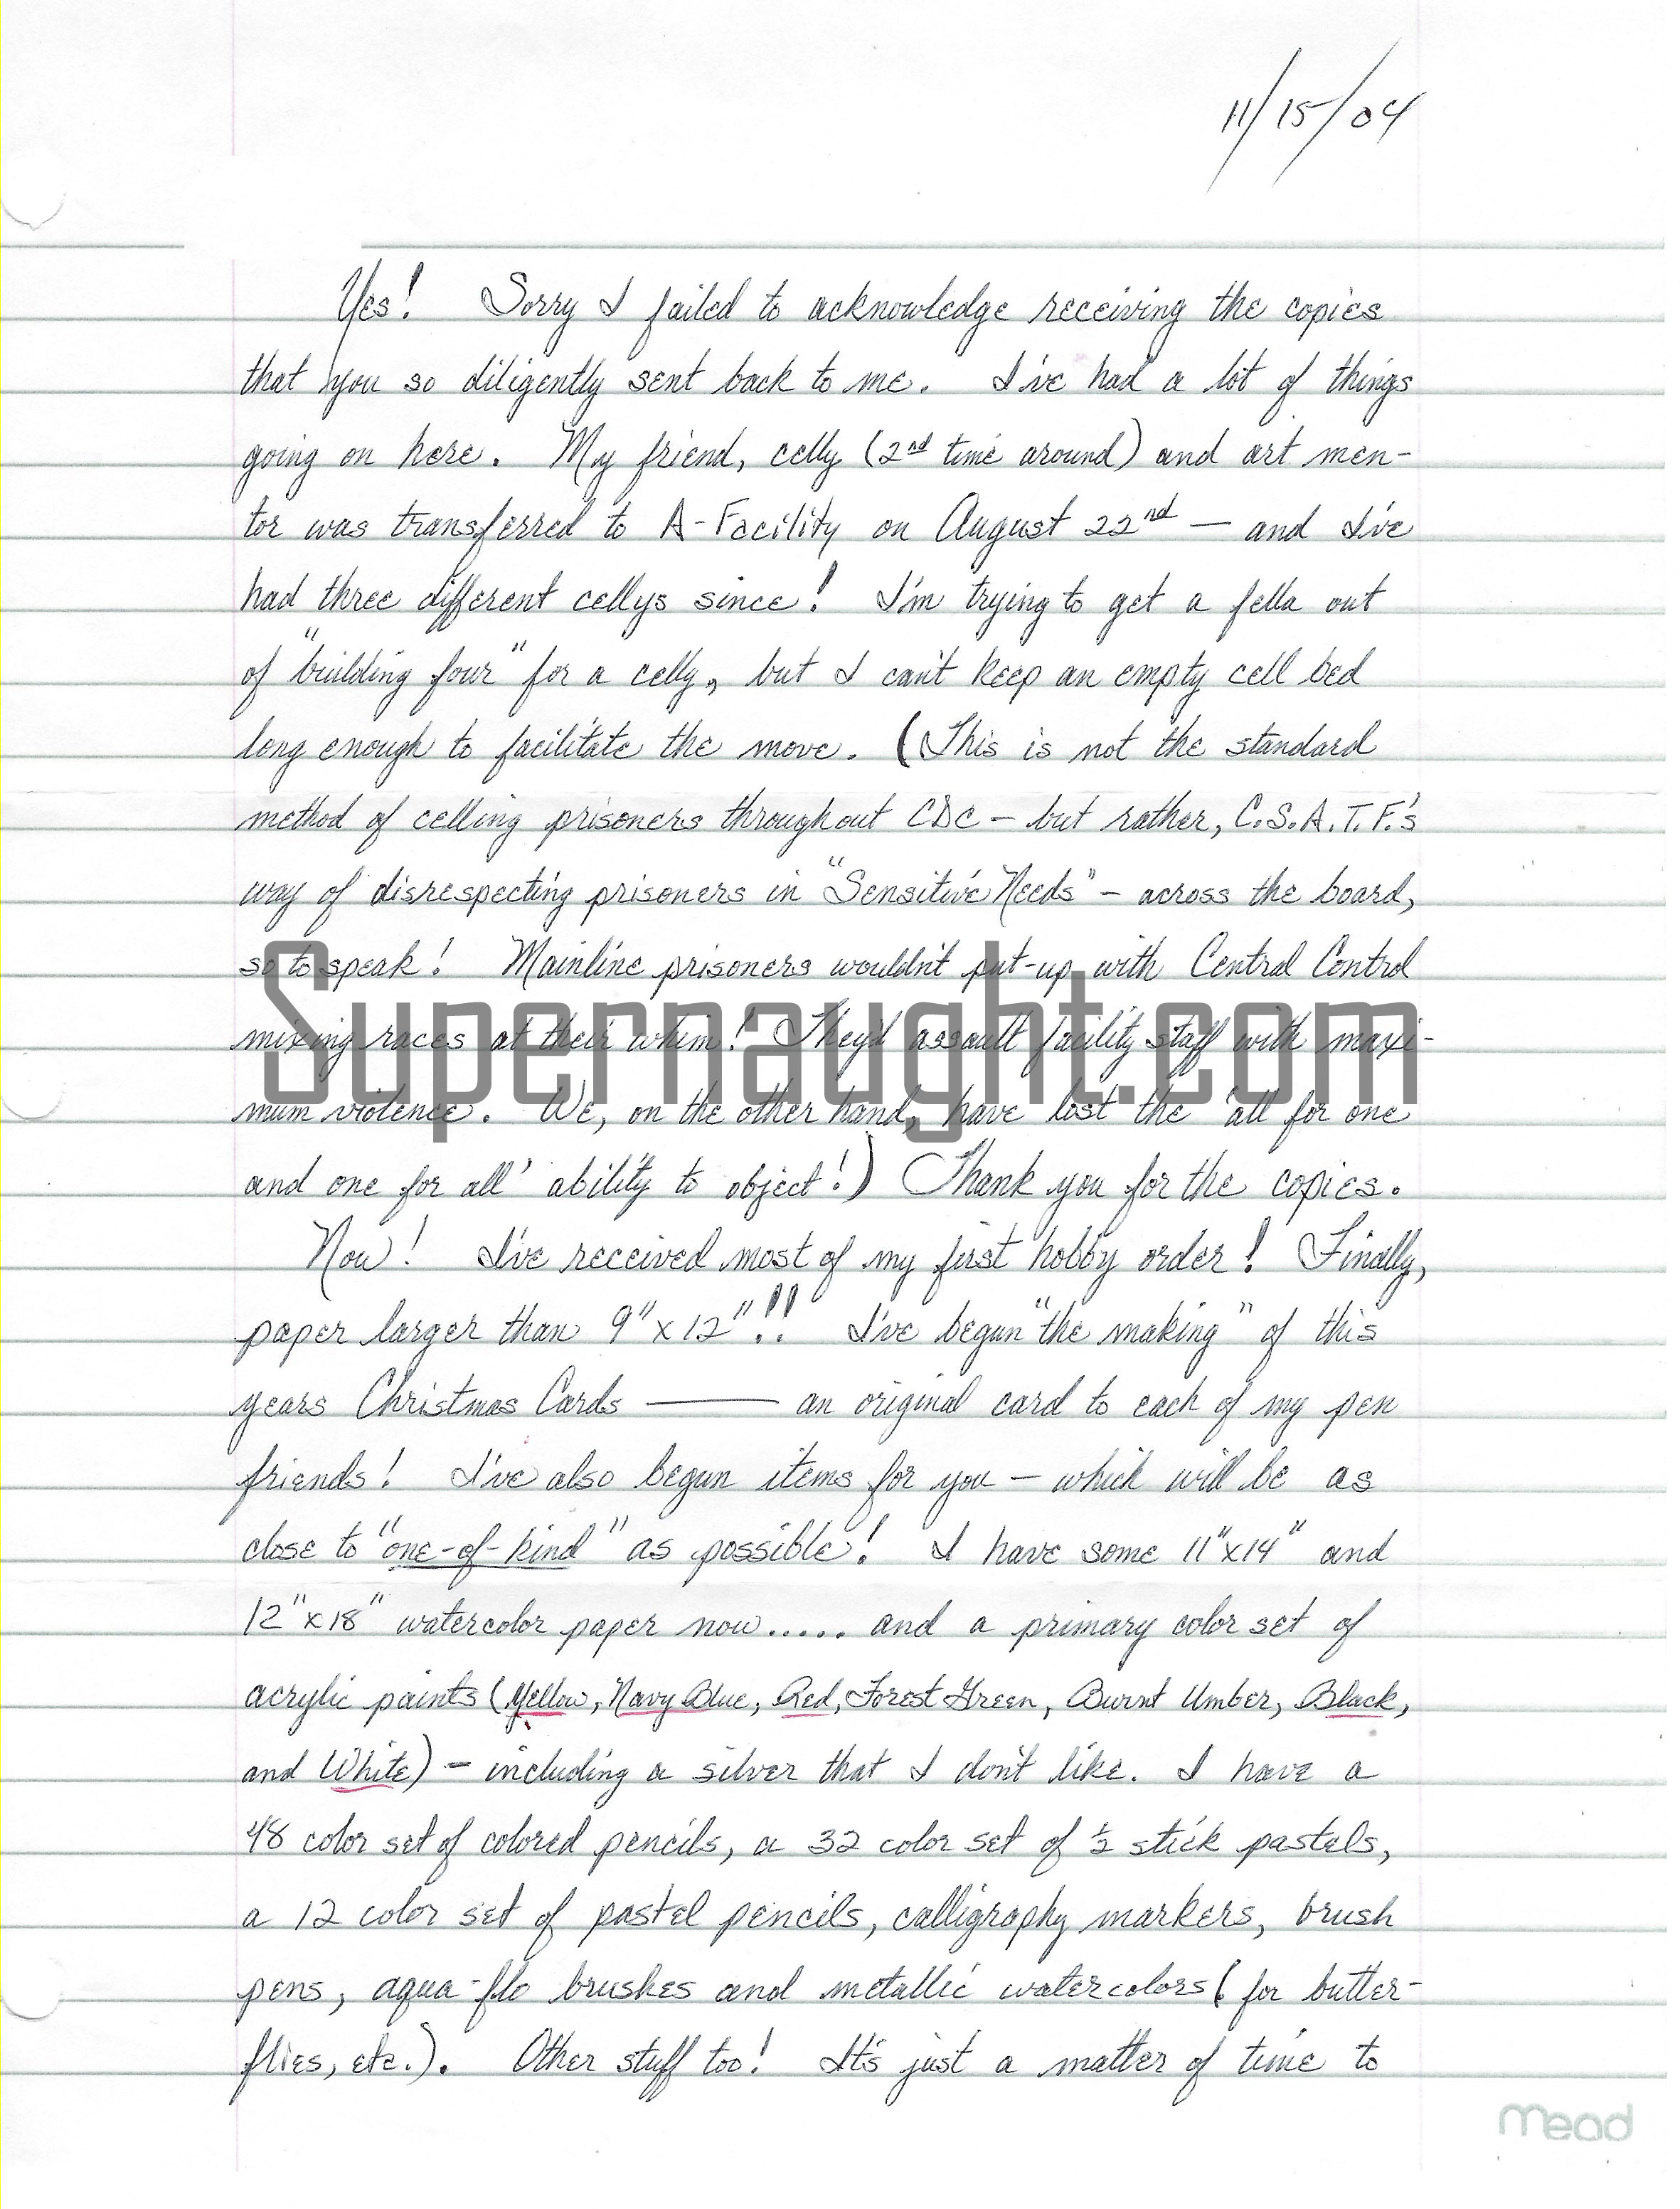 11/15/04
Yes! Sorry I failed to acknowledge receiving the copies
that you so diligently sent back to me. I've had a lot of things
going on here. My friend, celly (2nd time around) and art men-
tor was transferred to A-Facility on August 22nd — and I've
had three different cellys since! I'm trying to get a fella out
of "building four" for a celly, but I can't keep an empty cell bed
long enough to facilitate the move. (This is not the standard
method of celling prisoners throughout CDC - but rather, C.S.A.T.F.'s
way of disrespecting prisoners in "Sensitive Needs" - across the board,
so to speak! Mainline prisoners wouldn't put-up with Central Control
mixing races at their whim! They'd assault facility staff with maxi-
mum violence. We, on the other hand, have lost the 'all for one
and one for all' ability to object!) Thank you for the copies.
Now! I've received most of my first hobby order! Finally,
paper larger than 9" x 12"!! I've begun "the making" of this
years Christmas Cards — an original card to each of my pen
friends! I've also begun items for you - which will be as
close to "one-of-kind" as possible! I have some 11"x14" and
12"x18" watercolor paper now..... and a primary color set of
acrylic paints (Yellow, Navy Blue, Red, Forest Green, Burnt Umber, Black,
and White) - including a silver that I don't like. I have a
48 color set of colored pencils, a 32 color set of ½ stick pastels,
a 12 color set of pastel pencils, calligraphy markers, brush
pens, aqua-flo brushes and metallic watercolors (for butter-
flies, etc.). Other stuff too! It's just a matter of time to
Supernaught.com
mead